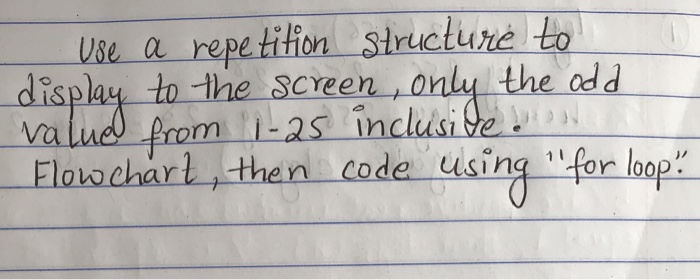 Use a repetition structure to
display to the screen, only the odd
value from 1-25 inclusive.
Flowchart, then code using "for loop".